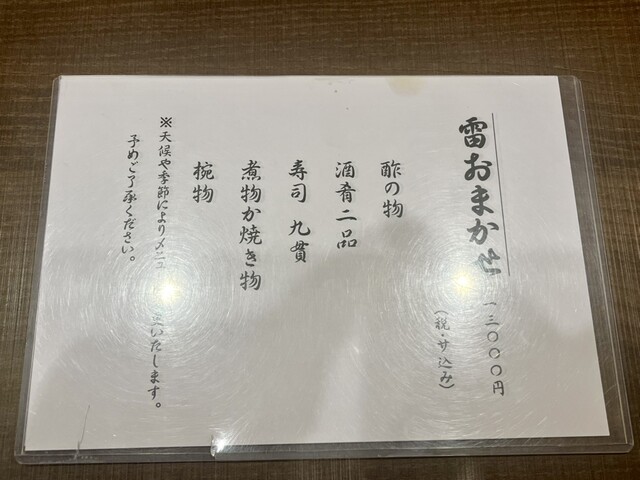 雷おまかせ 一三〇〇〇円
(税・サ込み)
酢の物
酒肴二品
寿司 九貫
煮物か焼き物
椀物
※天候や季節によりメニュ いたします。
予めご了承ください。